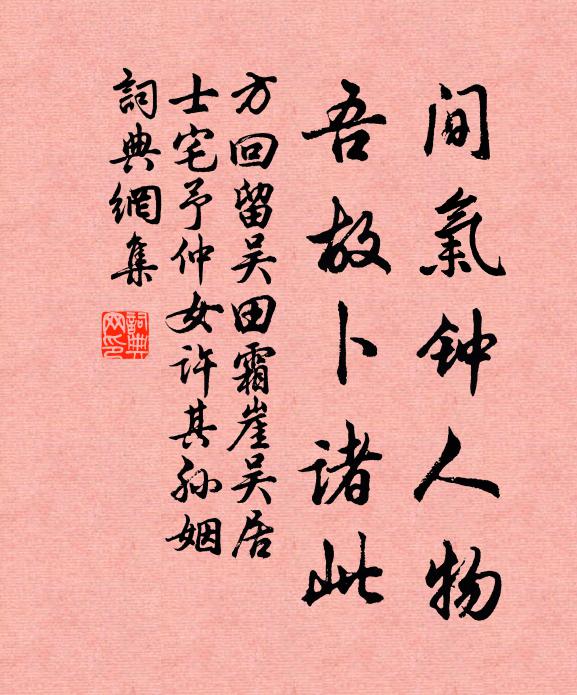 間氣钟人物
吾故卜諸此
方回留吴田霜崖吴居
士宅予仲女许其孙姻
詞典網集
詞典
网印